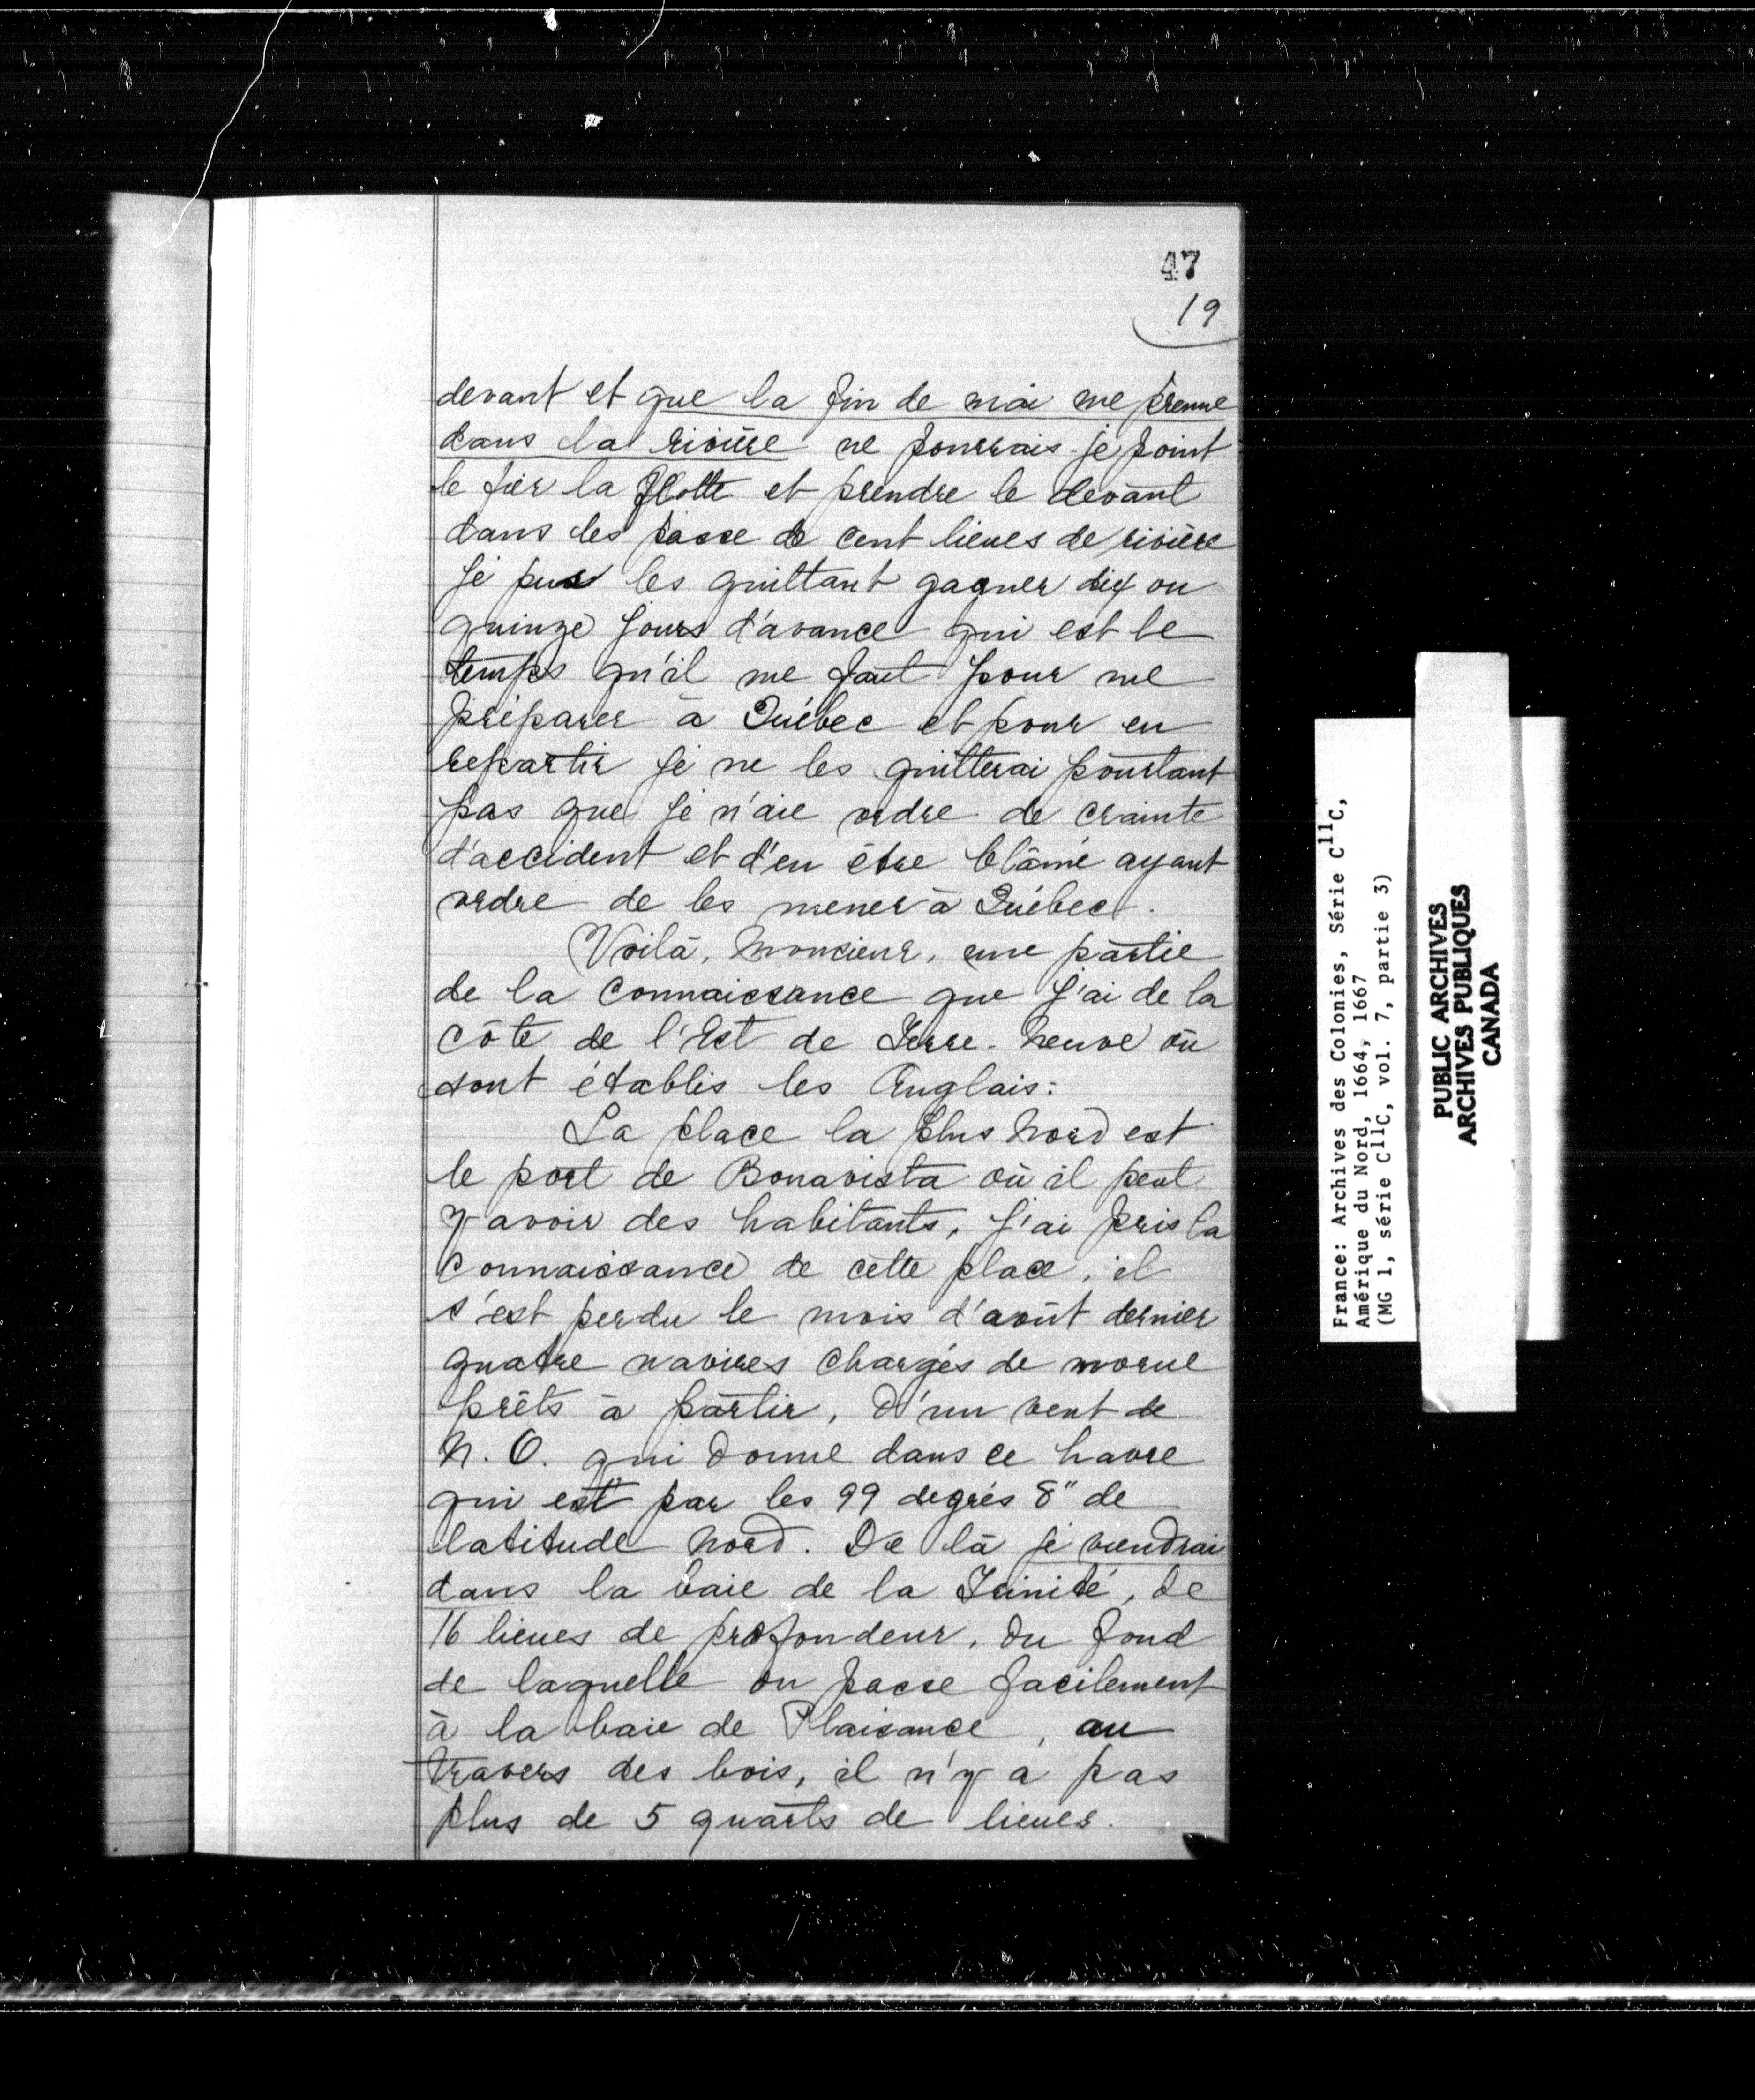 47
19
devant et que la fin de mai me prenne
dans la rivière ne pourrais-je point
le fier la flotte et prendre le devant
dans les passe de cent lieues de rivière
Je puis les quittant gagner dix ou
quinze jours d'avance qui est le
temps qu'il me faut pour me
préparer à Québec et pour en
repartir je ne les quitterai pourtant
pas que je n'aie ordre de crainte
d'accident et d'en être blâmé ayant
ordre de les mener à Québec.
Voilà, Monsieur, une partie
de la connaissance que j'ai de la
côte de l'Est de Terre-Neuve où
sont établis les Anglais:
La place la plus Nord est
le port de Bonavista où il peut
y avoir des habitants, j'ai pris la
connaissance de cette place, il
s'est perdu le mois d'août dernier
quatre navires chargés de morue
prêts à partir, d'un vent de
N. O. qui donne dans ce havre
qui est par les 99 degrés 8" de
latitude Nord. De là je viendrai
dans la baie de la Trinité, de
16 lieues de profondeur, du fond
de laquelle on passe facilement
à la baie de Plaisance, au
travers des bois, il n'y a pas
plus de 5 quarts de lieues.
France: Archives des Colonies, Série C11C,
Amérique du Nord, 1664, 1667
(MG 1, série C11C, vol. 7, partie 3)
PUBLIC ARCHIVES
ARCHIVES PUBLIQUES
CANADA